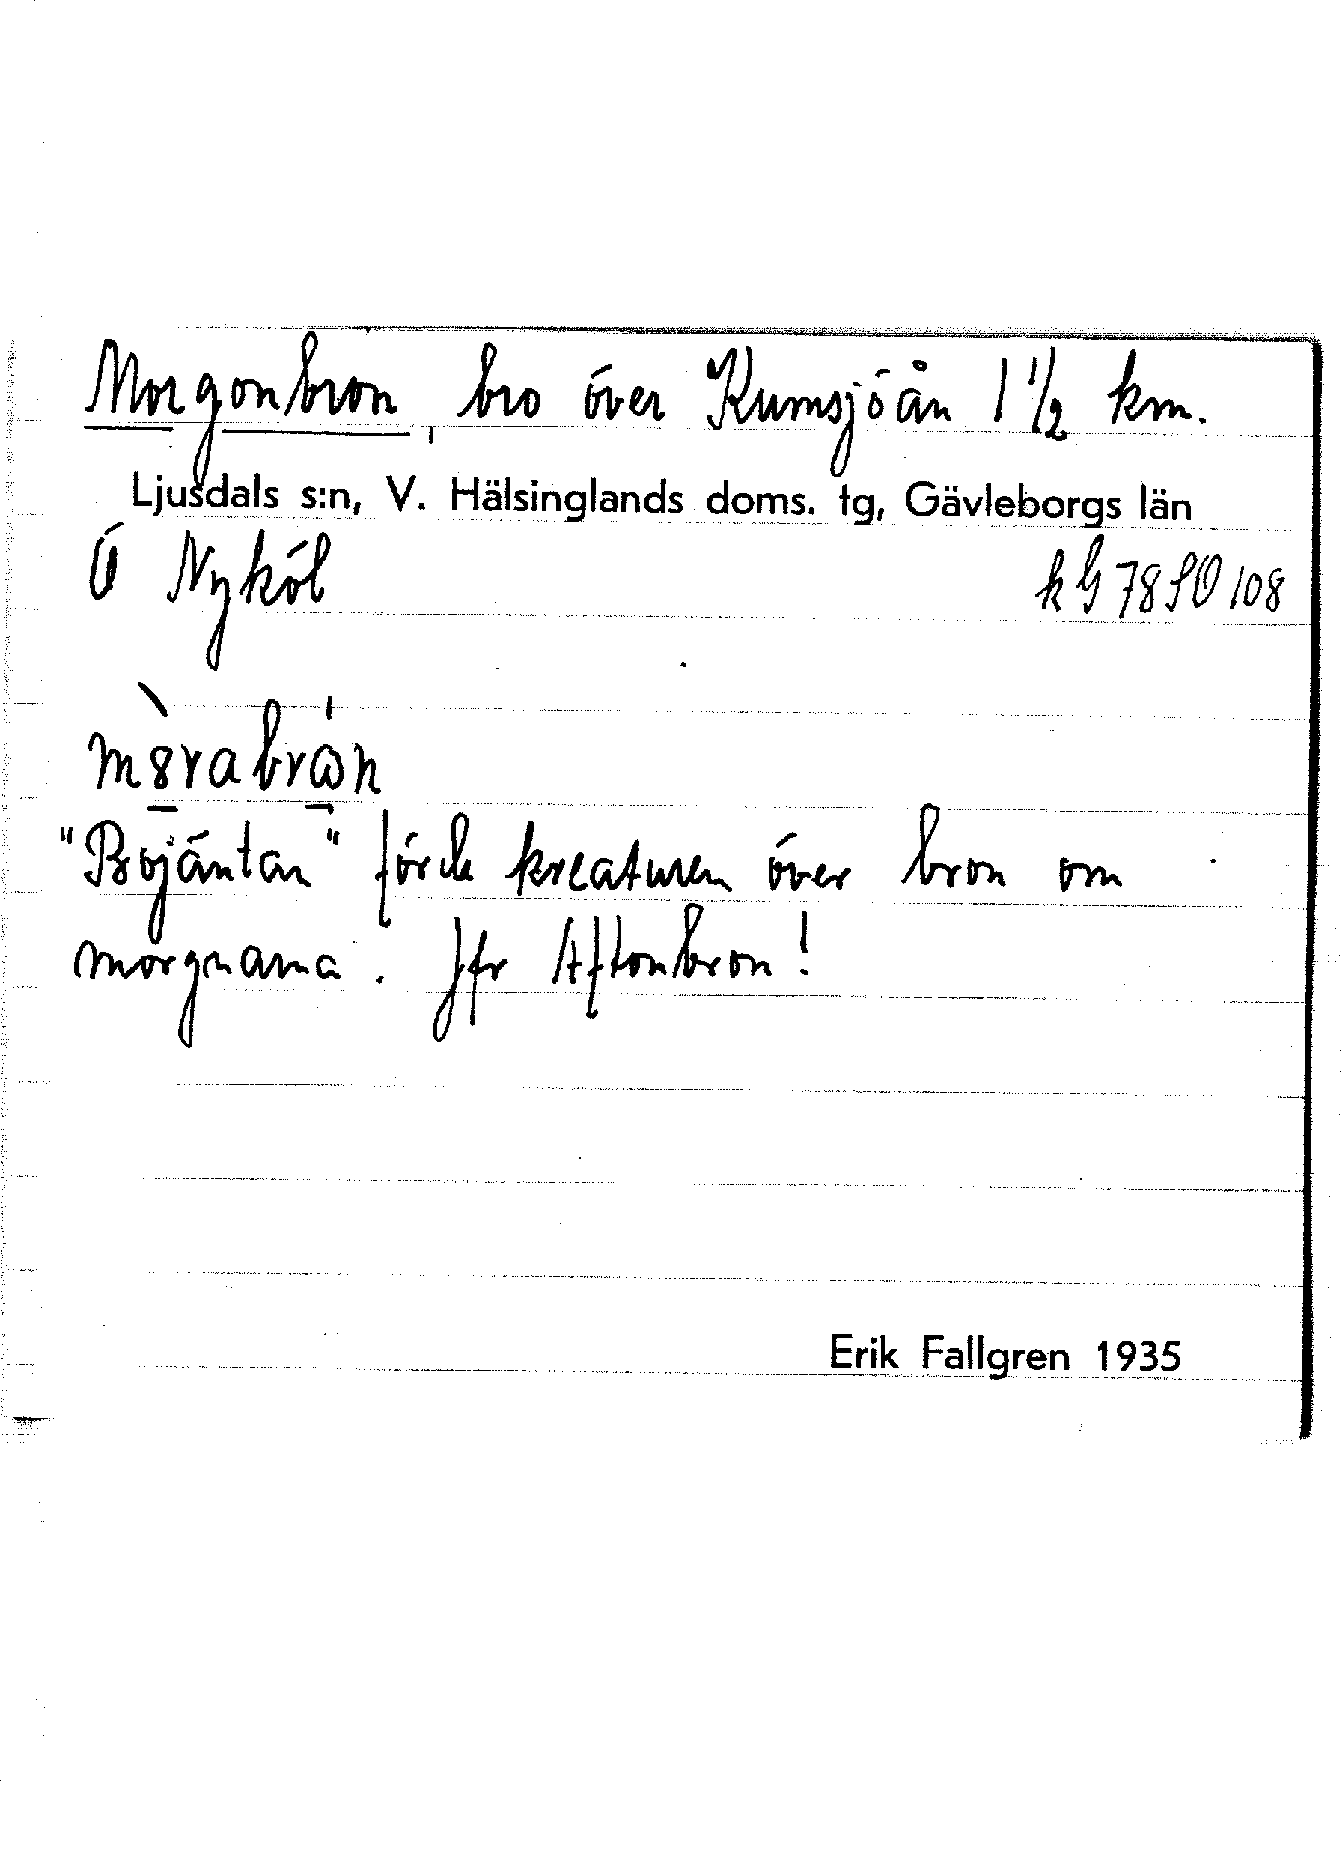 Morgonbron, bro över Kumsjöån 1 1/2 km.
Ljusdals s:n, V. Hälsinglands doms. tg, Gävleborgs län
Ö Nyköl kG 78 SO 108
"Bojäntan" förde kreaturen över bron om
morgnarna. Jfr Aftonbron!
Erik Fallgren 1935